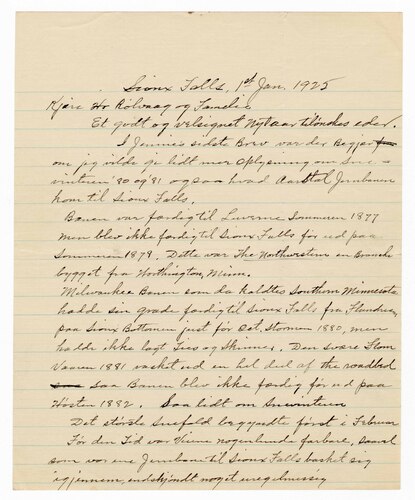 Sioux Falls, 1st Jan. 1925
Kjære Hr Rölvaag og Familie
Et godt og velsignet Nytaar tilönskes eder.
I Jennies sidste Brev var der Begjær
om jeg vilde gi lidt mer Oplysning om Sne-
vinteren '80 og '81 ogsaa hvad Aarstal Jernbanen
kom til Sioux Falls.
Banen var færdig til Luverne Sommeren 1877
men blev ikke færdig til Sioux Falls för ud paa
Sommeren 1878. Dette var The Northwestern en Branch
bygget fra Worthington, Minn.
Milwaukee Banen som da kaldtes Southern Minnesota
hadde sin grade færdig til Sioux Falls fra Flandreau,
paa Sioux Bottomen just för Oct. Stormen 1880, men
hadde ikke lagt Ties og Skinner. Den svære Flom
Vaaren 1881 vasket ud en hel del af the roadbed
saa Banen blev ikke færdig för ud paa
Hösten 1882. Saa lidt om Snevinteren
Det störste Snefald begyndte först i Februar
För den Tid var Veiene nogenlunde farbare, saavel
som vor ene Jernbane til Sioux Falls basket sig
igjennem, endskjöndt noget uregelmessig